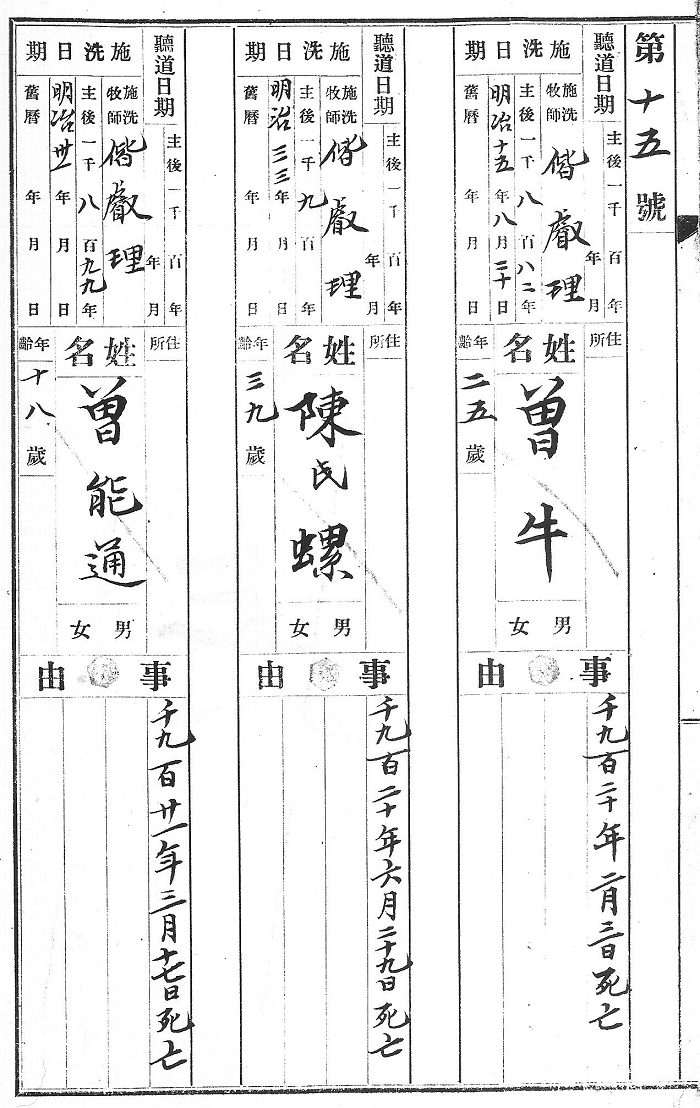 第十五號
聽道日期 主後一千 百 年 年 月
施洗日期
施洗牧師 偕叡理
主後一千八百八二年
明治十五年八月三十日
舊曆 年 月 日
住所
姓名 曾牛 男 女
年齡 二五歲
事由
千九百二十年二月三日死亡
聽道日期 主後一千 百 年 年 月
施洗日期
施洗牧師 偕叡理
主後一千九百 年
明治三三年 月 日
舊曆 年 月 日
住所
姓名 陳氏螺 男 女
年齡 三九歲
事由
千九百二十年六月二十九日死亡
聽道日期 主後一千 百 年 年 月
施洗日期
施洗牧師 偕叡理
主後一千八百九九年
明治卅年 月 日
舊曆 年 月 日
住所
姓名 曾能通 男 女
年齡 十八歲
事由
千九百廿一年三月十七日死亡